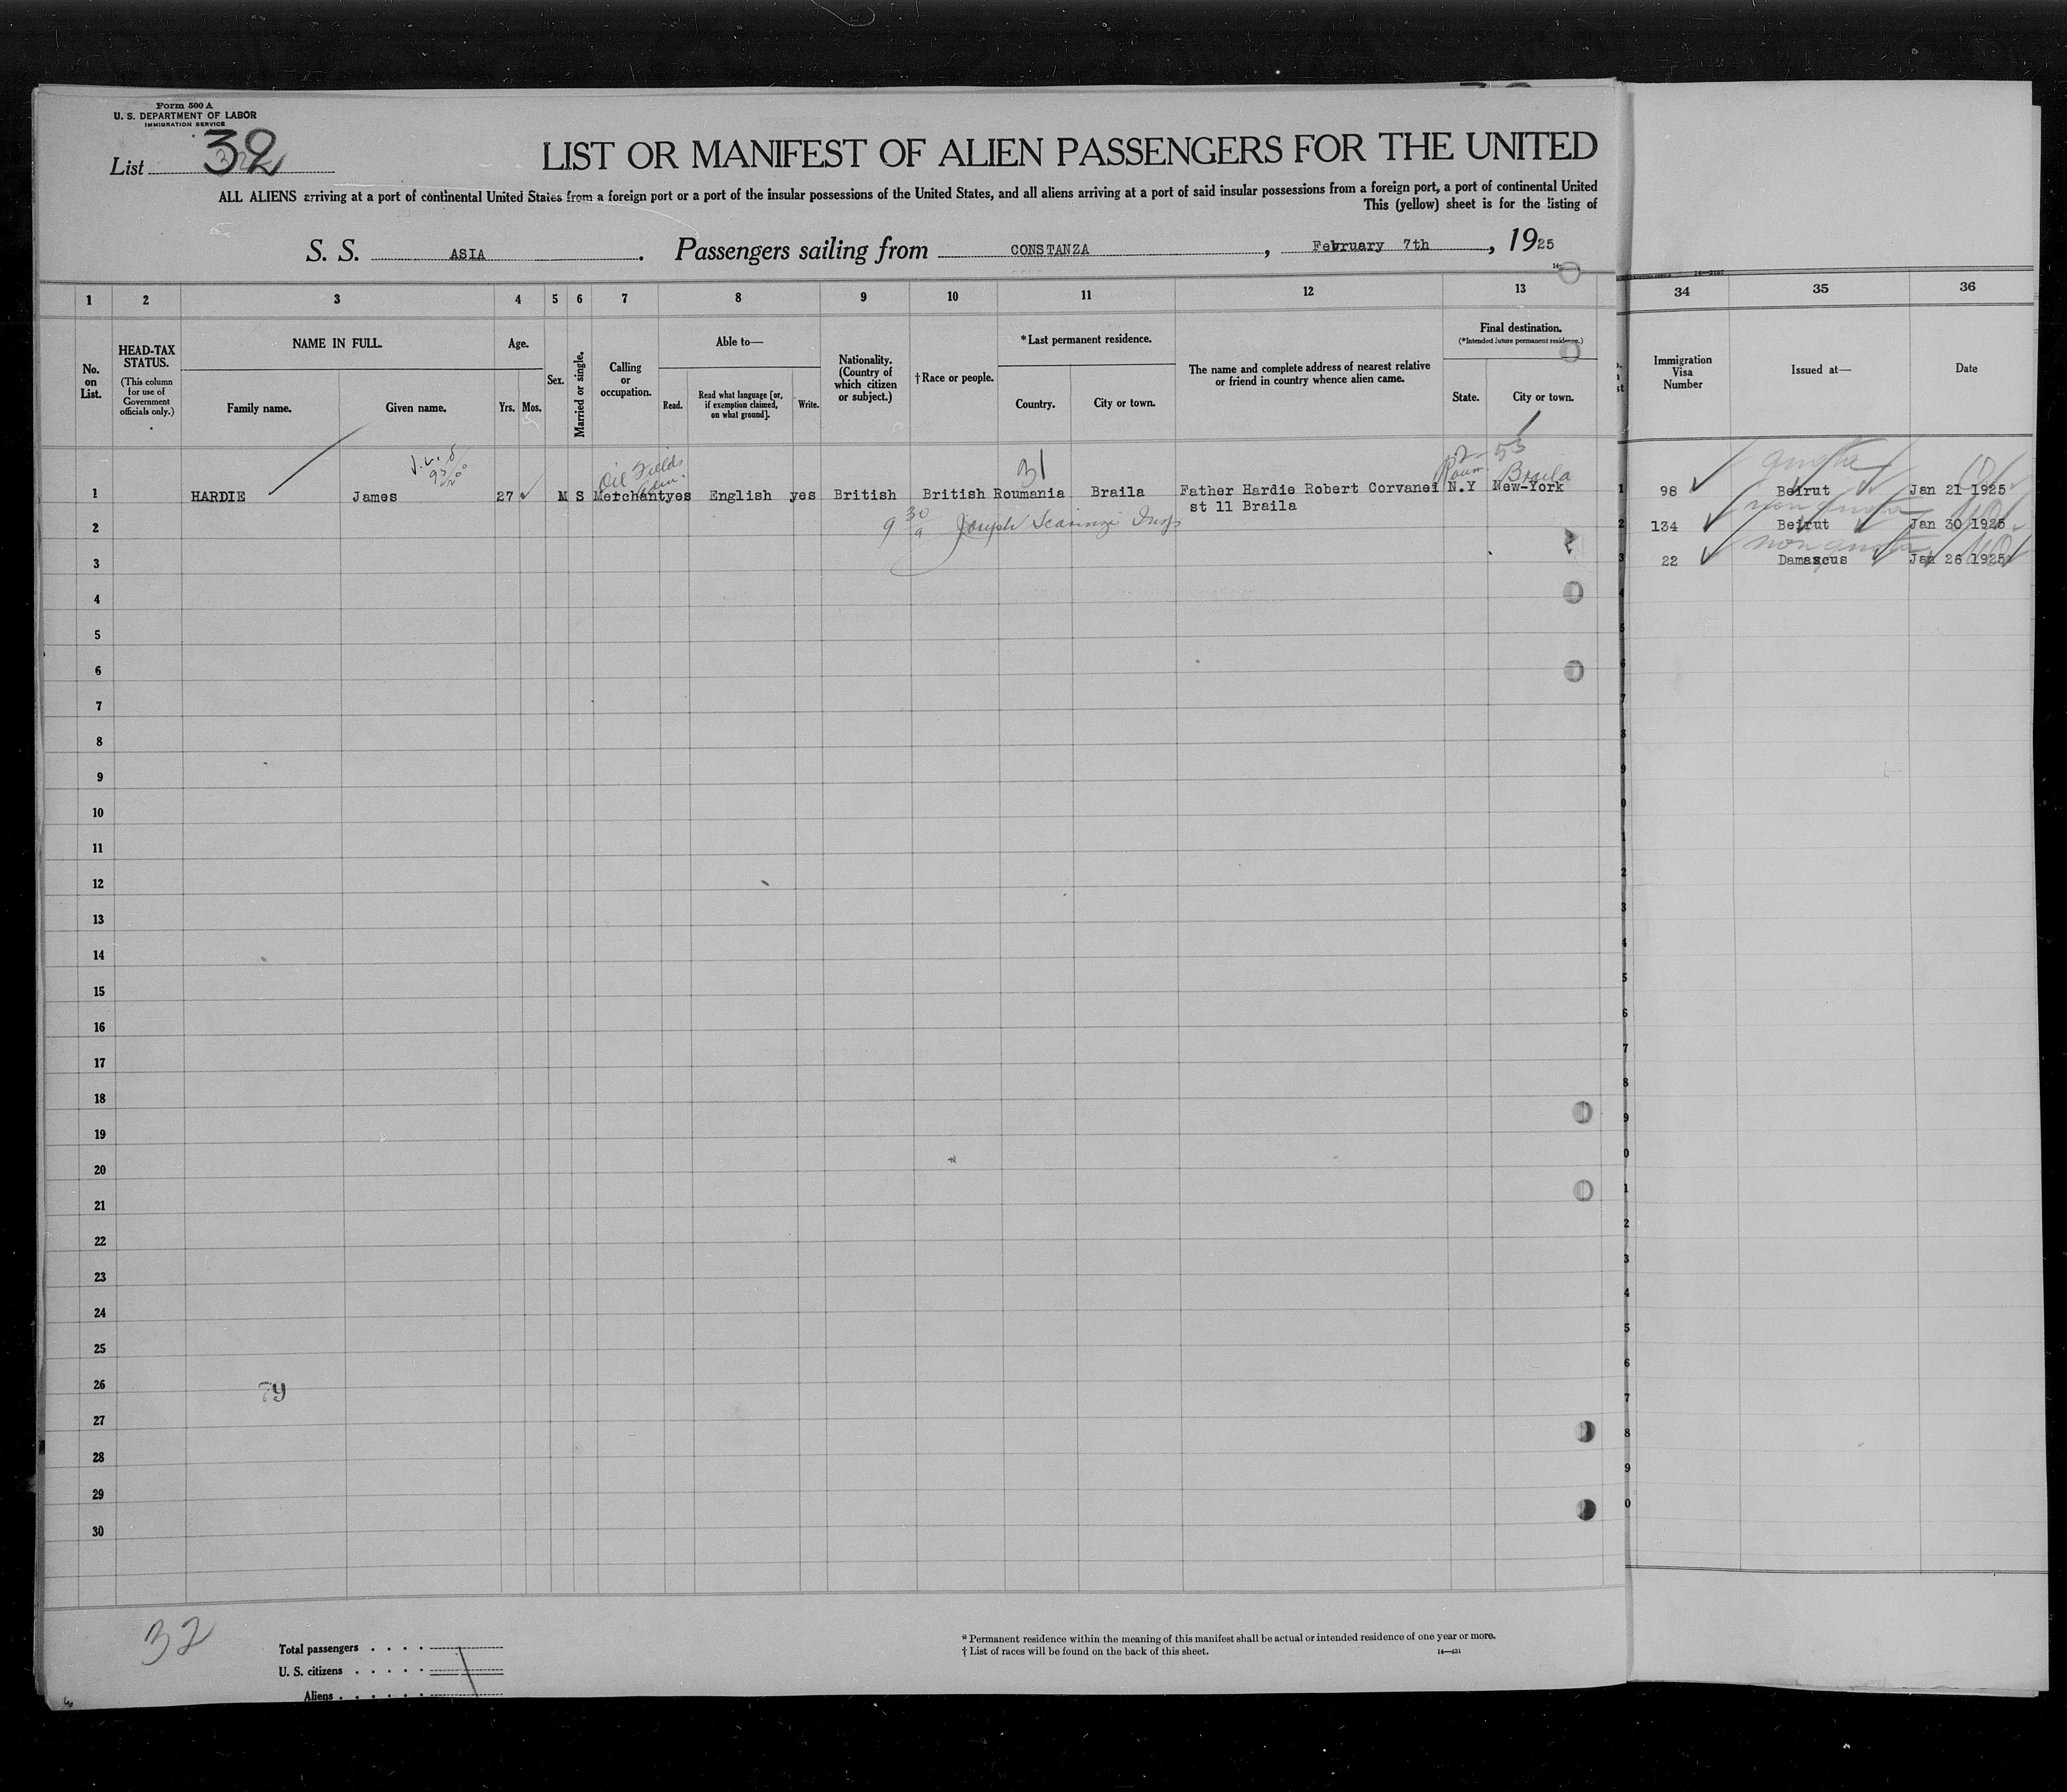 Form 500 A
U. S. DEPARTMENT OF LABOR
IMMIGRATION SERVICE
List 32
LIST OR MANIFEST OF ALIEN PASSENGERS FOR THE UNITED
ALL ALIENS arriving at a port of continental United States from a foreign port or a port of the insular possessions of the United States, and all aliens arriving at a port of said insular possessions from a foreign port, a port of continental United
This (yellow) sheet is for the listing of
S. S. ASIA. Passengers sailing from CONSTANZA, February 7th, 1925
1 2 3 4 5 6 7 8 9 10 11 12 13
No. on List.
HEAD-TAX STATUS.
(This column for use of Government officials only.)
NAME IN FULL.
Family name. Given name.
Age.
Yrs. Mos.
Sex.
Married or single.
Calling or occupation.
Able to—
Read. Read what language [or, if exemption claimed, on what ground]. Write.
Nationality. (Country of which citizen or subject.)
†Race or people.
*Last permanent residence.
Country. City or town.
The name and complete address of nearest relative or friend in country whence alien came.
Final destination.
(*Intended future permanent residence.)
State. City or town.
Oil Fields
31
53
Roum. Braila
1 HARDIE James 27 M S Merchant yes English yes British British Roumania Braila Father Hardie Robert Corvanei N.Y New-York
st 11 Braila
2
9 30 a Joseph Insp
3
4
5
6
7
8
9
10
11
12
13
14
15
16
17
18
19
20
21
22
23
24
25
26
79
27
28
29
30
32
Total passengers
U. S. citizens
Aliens
*Permanent residence within the meaning of this manifest shall be actual or intended residence of one year or more.
†List of races will be found on the back of this sheet.
14—431
34 35 36
Immigration Visa Number
Issued at—
Date
quota
1 98 Beirut Jan 21 1925
non quota
2 134 Beirut Jan 30 1925
non quota
3 22 Damascus Jan 26 1925